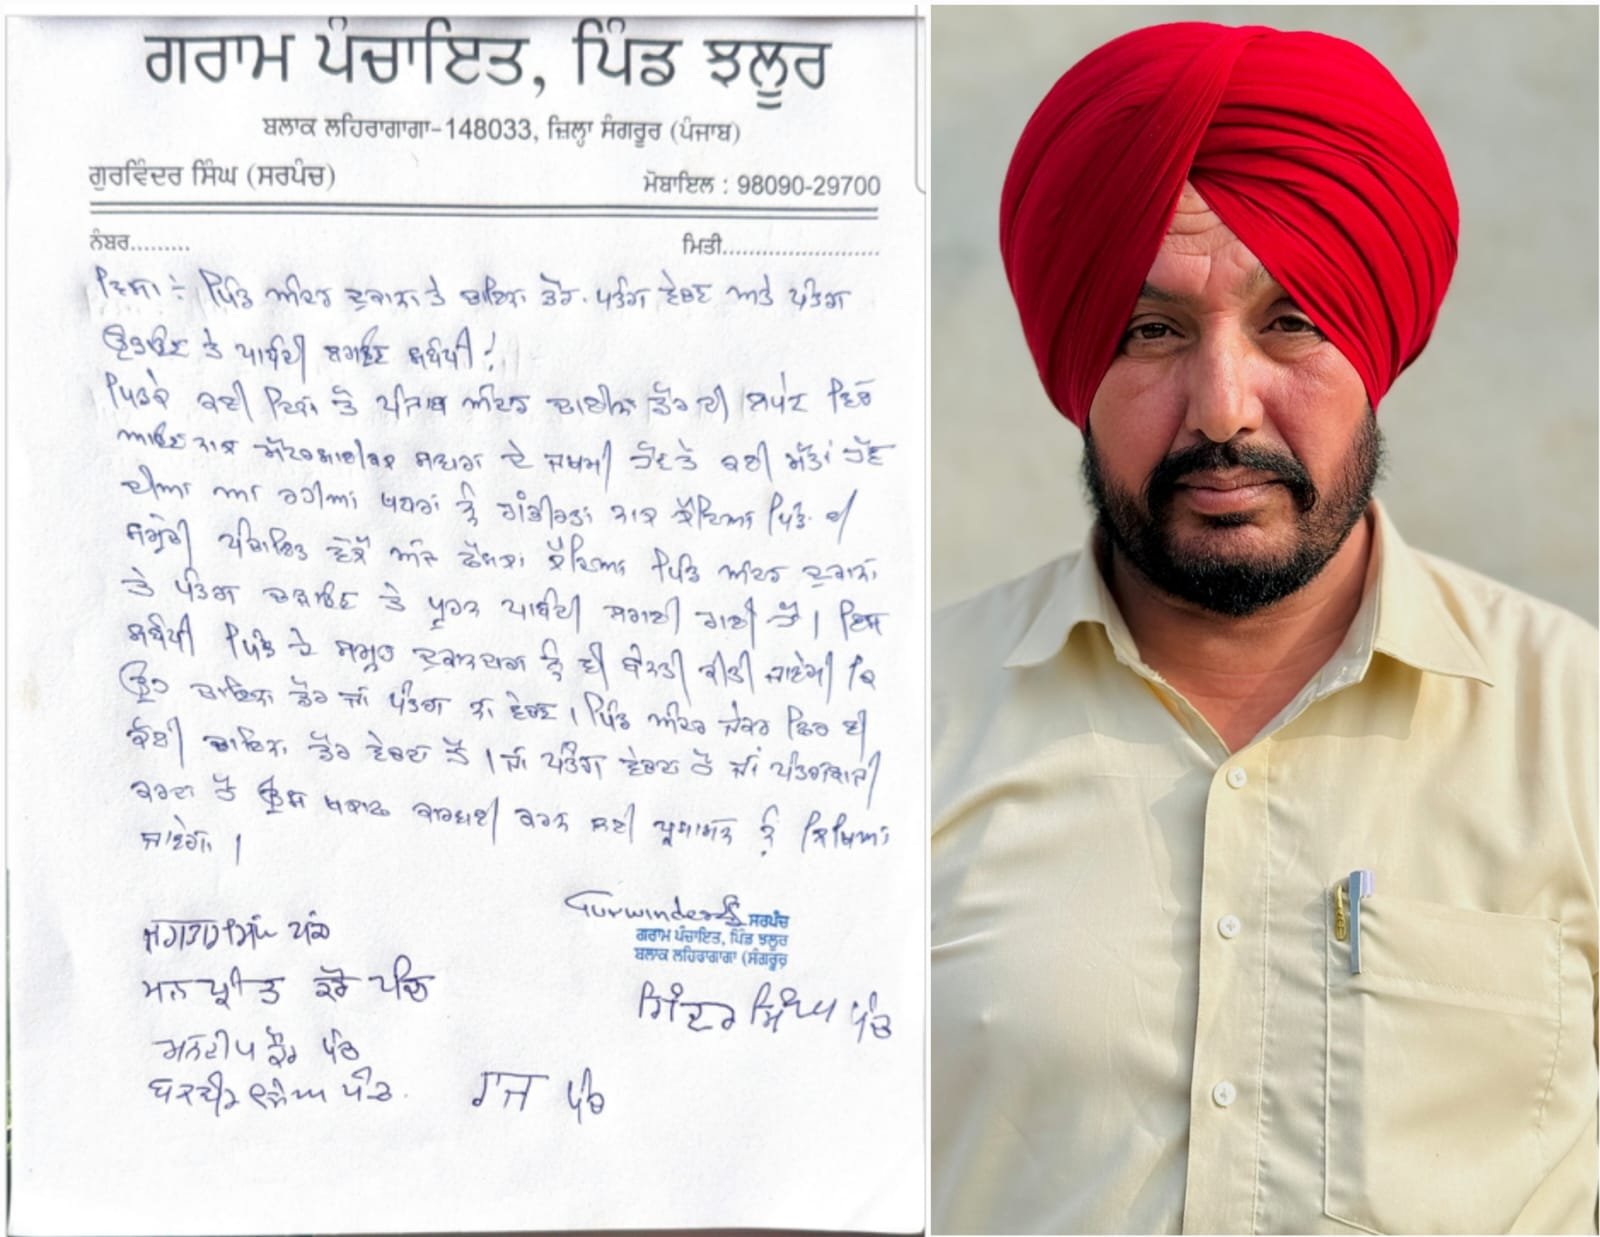 ਗਰਾਮ ਪੰਚਾਇਤ, ਪਿੰਡ ਝਲੂਰ
ਬਲਾਕ ਲਹਿਰਾਗਾਗਾ-148033, ਜ਼ਿਲ੍ਹਾ ਸੰਗਰੂਰ (ਪੰਜਾਬ)
ਗੁਰਵਿੰਦਰ ਸਿੰਘ (ਸਰਪੰਚ)
ਮੋਬਾਇਲ : 98090-29700
ਨੰਬਰ.........
ਮਿਤੀ.......................
ਵਿਸ਼ਾ :- ਪਿੰਡ ਅੰਦਰ ਦੁਕਾਨਾਂ ਤੇ ਚਾਇਨਾ ਡੋਰ, ਪਤੰਗ ਵੇਚਣ ਅਤੇ ਪਤੰਗ
ਉਡਾਉਣ ਤੇ ਪਾਬੰਦੀ ਲਗਾਉਣ ਸਬੰਧੀ।
ਪਿਛਲੇ ਕਈ ਦਿਨਾਂ ਤੋਂ ਪੰਜਾਬ ਅੰਦਰ ਚਾਈਨਾ ਡੋਰ ਦੀ ਲਪੇਟ ਵਿੱਚ
ਆਉਣ ਨਾਲ ਮੋਟਰਸਾਈਕਲ ਸਵਾਰਾਂ ਦੇ ਜਖਮੀ ਹੋਣ ਤੇ ਕਈ ਮੌਤਾਂ ਹੋਣ
ਦੀਆਂ ਆ ਰਹੀਆਂ ਖਬਰਾਂ ਨੂੰ ਗੰਭੀਰਤਾ ਨਾਲ ਲੈਂਦਿਆਂ ਪਿੰਡ ਦੀ
ਸਮੁੱਚੀ ਪੰਚਾਇਤ ਵੱਲੋਂ ਅੱਜ ਫੈਸਲਾ ਲੈਂਦਿਆਂ ਪਿੰਡ ਅੰਦਰ ਦੁਕਾਨਾਂ
ਤੇ ਪਤੰਗ ਚੜਾਉਣ ਤੇ ਪੂਰਨ ਪਾਬੰਦੀ ਲਗਾਈ ਗਈ ਹੈ। ਇਸ
ਸਬੰਧੀ ਪਿੰਡ ਦੇ ਸਮੂਹ ਦੁਕਾਨਦਾਰਾਂ ਨੂੰ ਵੀ ਬੇਨਤੀ ਕੀਤੀ ਜਾਵੇਗੀ ਕਿ
ਉਹ ਚਾਇਨਾ ਡੋਰ ਜਾਂ ਪਤੰਗ ਨਾ ਵੇਚਣ। ਪਿੰਡ ਅੰਦਰ ਜੇਕਰ ਫਿਰ ਵੀ
ਕੋਈ ਚਾਇਨਾ ਡੋਰ ਵੇਚਦਾ ਹੈ। ਜਾਂ ਪਤੰਗ ਵੇਚਦਾ ਹੈ ਜਾਂ ਪਤੰਗਬਾਜੀ
ਕਰਦਾ ਹੈ ਉਸ ਖਿਲਾਫ ਕਾਰਵਾਈ ਕਰਨ ਲਈ ਪ੍ਰਸ਼ਾਸਨ ਨੂੰ ਲਿਖਿਆ
ਜਾਵੇਗਾ।
Gurwinder ਸਰਪੰਚ
ਗਰਾਮ ਪੰਚਾਇਤ, ਪਿੰਡ ਝਲੂਰ
ਬਲਾਕ ਲਹਿਰਾਗਾਗਾ (ਸੰਗਰੂਰ)
ਜਗਤਾਰ ਸਿੰਘ ਪੰਚ
ਮਨਪ੍ਰੀਤ ਕੌਰ ਪੰਚ
ਸਿੰਦਰ ਸਿੰਘ ਪੰਚ
ਮਨਦੀਪ ਕੌਰ ਪੰਚ
ਪੰਚ
ਰਾਜ ਪੰਚ